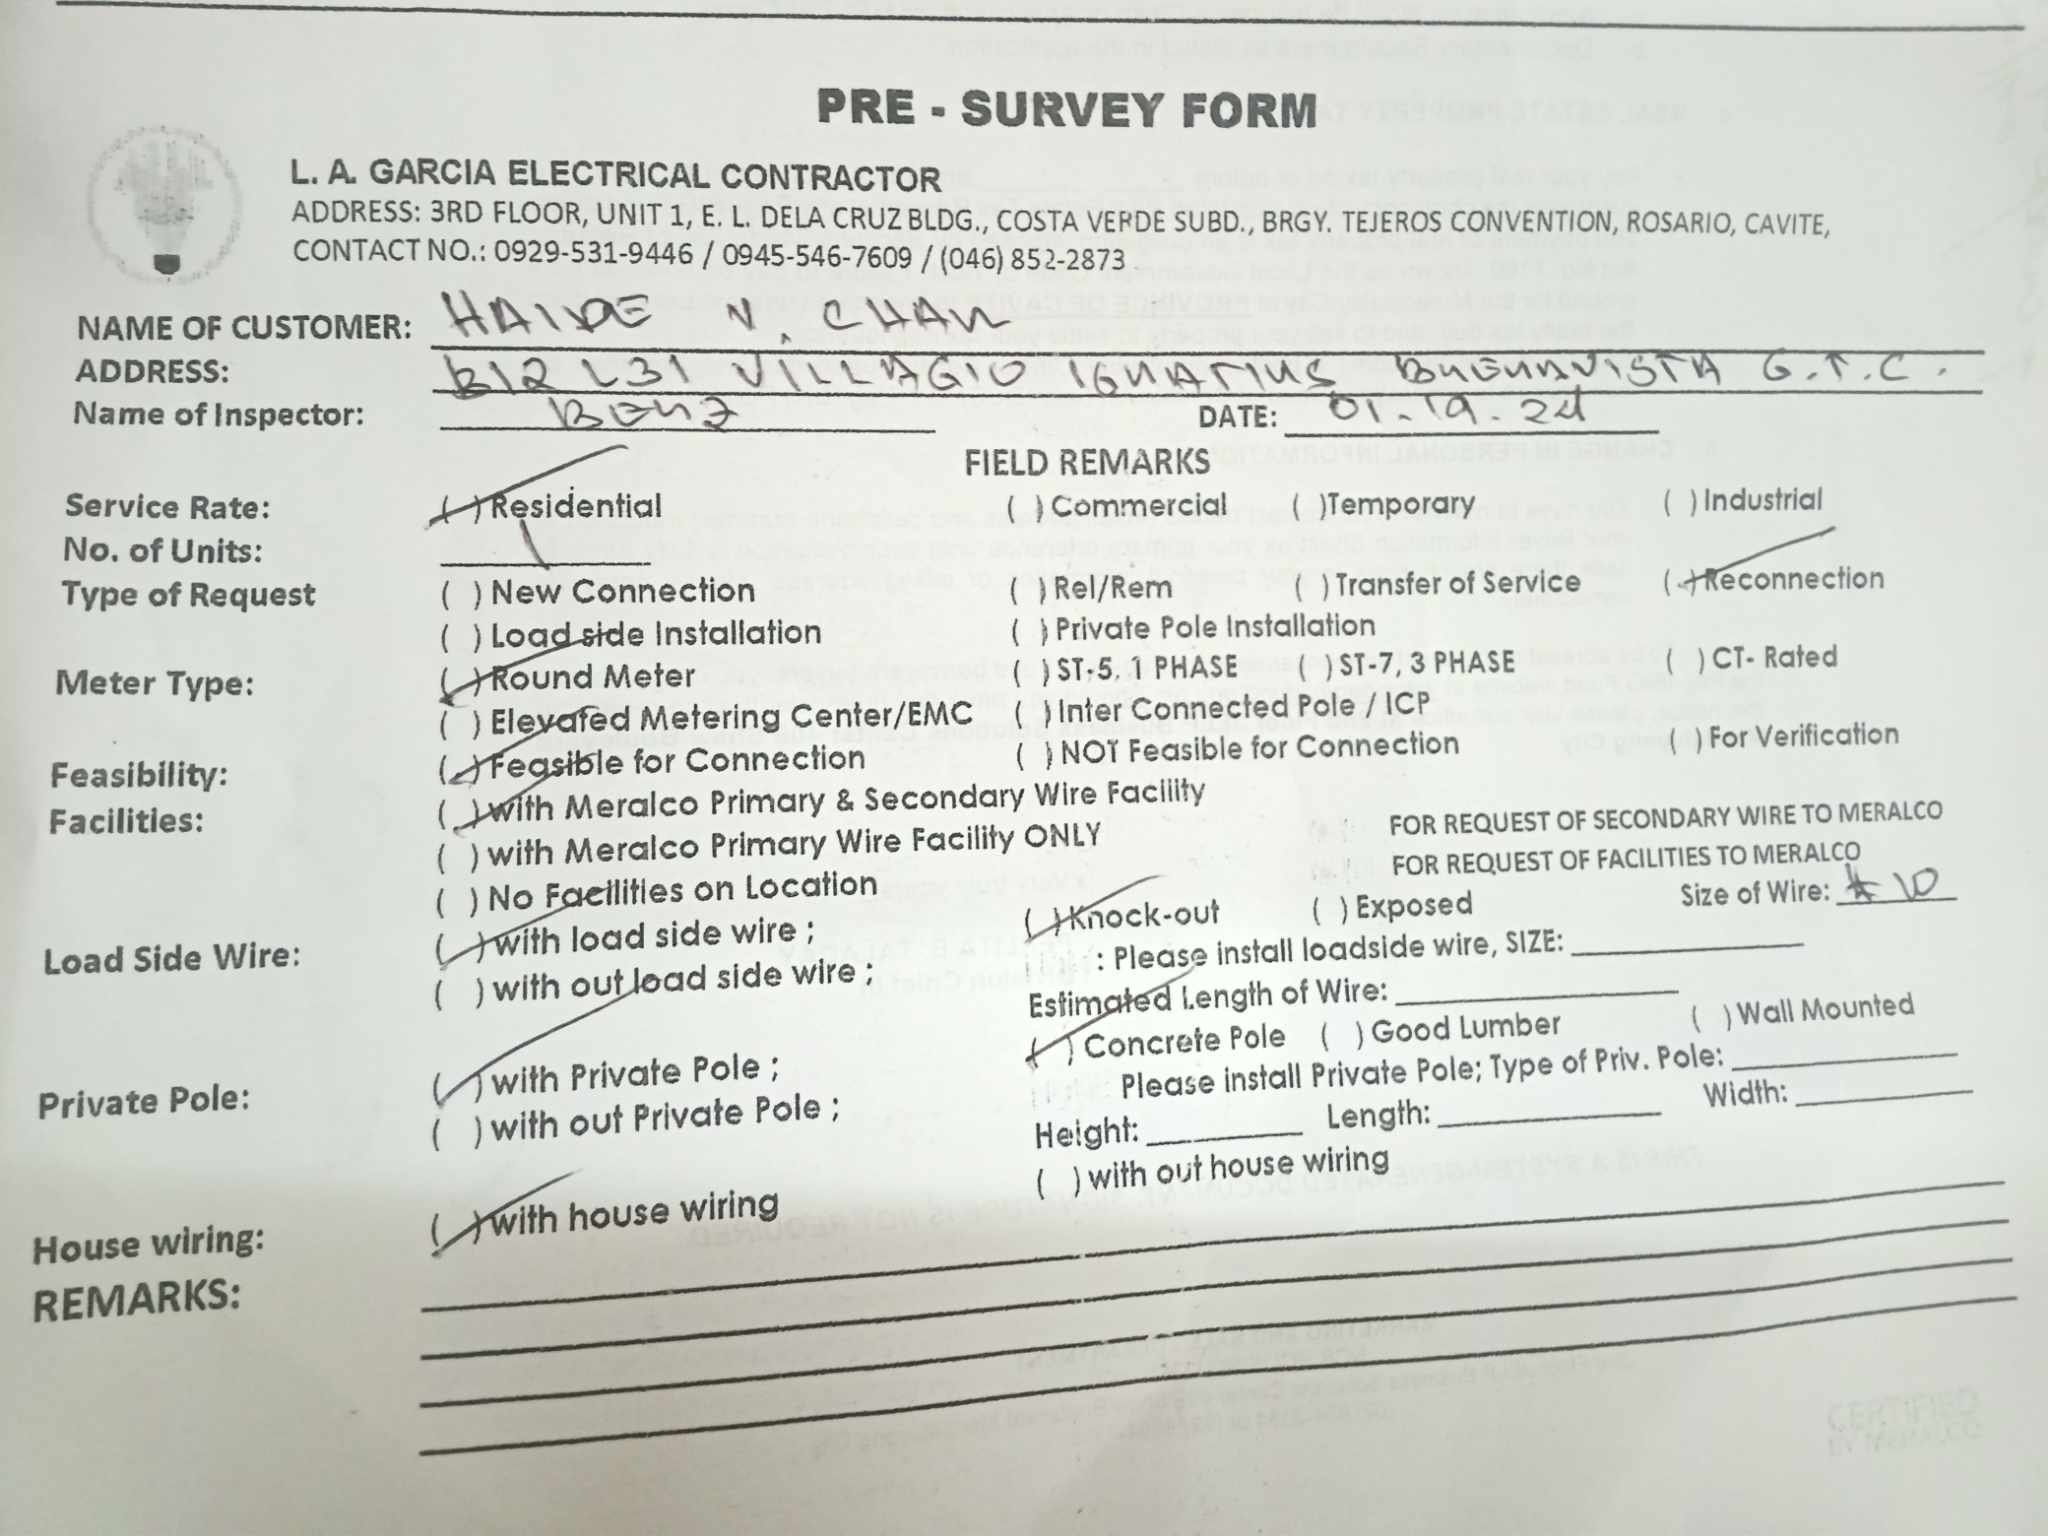 PRE - SURVEY FORM
L. A. GARCIA ELECTRICAL CONTRACTOR
ADDRESS: 3RD FLOOR, UNIT 1, E. L. DELA CRUZ BLDG., COSTA VERDE SUBD., BRGY. TEJEROS CONVENTION, ROSARIO, CAVITE,
CONTACT NO.: 0929-531-9446 / 0945-546-7609 / (046) 852-2873
NAME OF CUSTOMER: HAIDE N. CHAN
ADDRESS: B12 L31 VILLAGIO IGNATIUS BUENAVISTA G.T.C.
Name of Inspector: BENZ DATE: 01.19.24
FIELD REMARKS
Service Rate: (✓) Residential ( ) Commercial ( )Temporary ( ) Industrial
No. of Units: 1
Type of Request ( ) New Connection ( ) Rel/Rem ( ) Transfer of Service (✓) Reconnection
( ) Load side Installation ( ) Private Pole Installation
Meter Type: (✓) Round Meter ( ) ST-5, 1 PHASE ( ) ST-7, 3 PHASE ( ) CT- Rated
( ) Elevated Metering Center/EMC ( ) Inter Connected Pole / ICP
Feasibility: (✓) Feasible for Connection ( ) NOT Feasible for Connection ( ) For Verification
Facilities: (✓) with Meralco Primary & Secondary Wire Facility
( ) with Meralco Primary Wire Facility ONLY FOR REQUEST OF SECONDARY WIRE TO MERALCO
( ) No Facilities on Location FOR REQUEST OF FACILITIES TO MERALCO
Load Side Wire: (✓) with load side wire ; (✓) Knock-out ( ) Exposed Size of Wire: # 10
( ) with out load side wire ; : Please install loadside wire, SIZE:
Estimated Length of Wire:
Private Pole: (✓) with Private Pole ; (✓) Concrete Pole ( ) Good Lumber ( ) Wall Mounted
( ) with out Private Pole ; Please install Private Pole; Type of Priv. Pole:
Height: Length: Width:
House wiring: (✓) with house wiring ( ) with out house wiring
REMARKS: